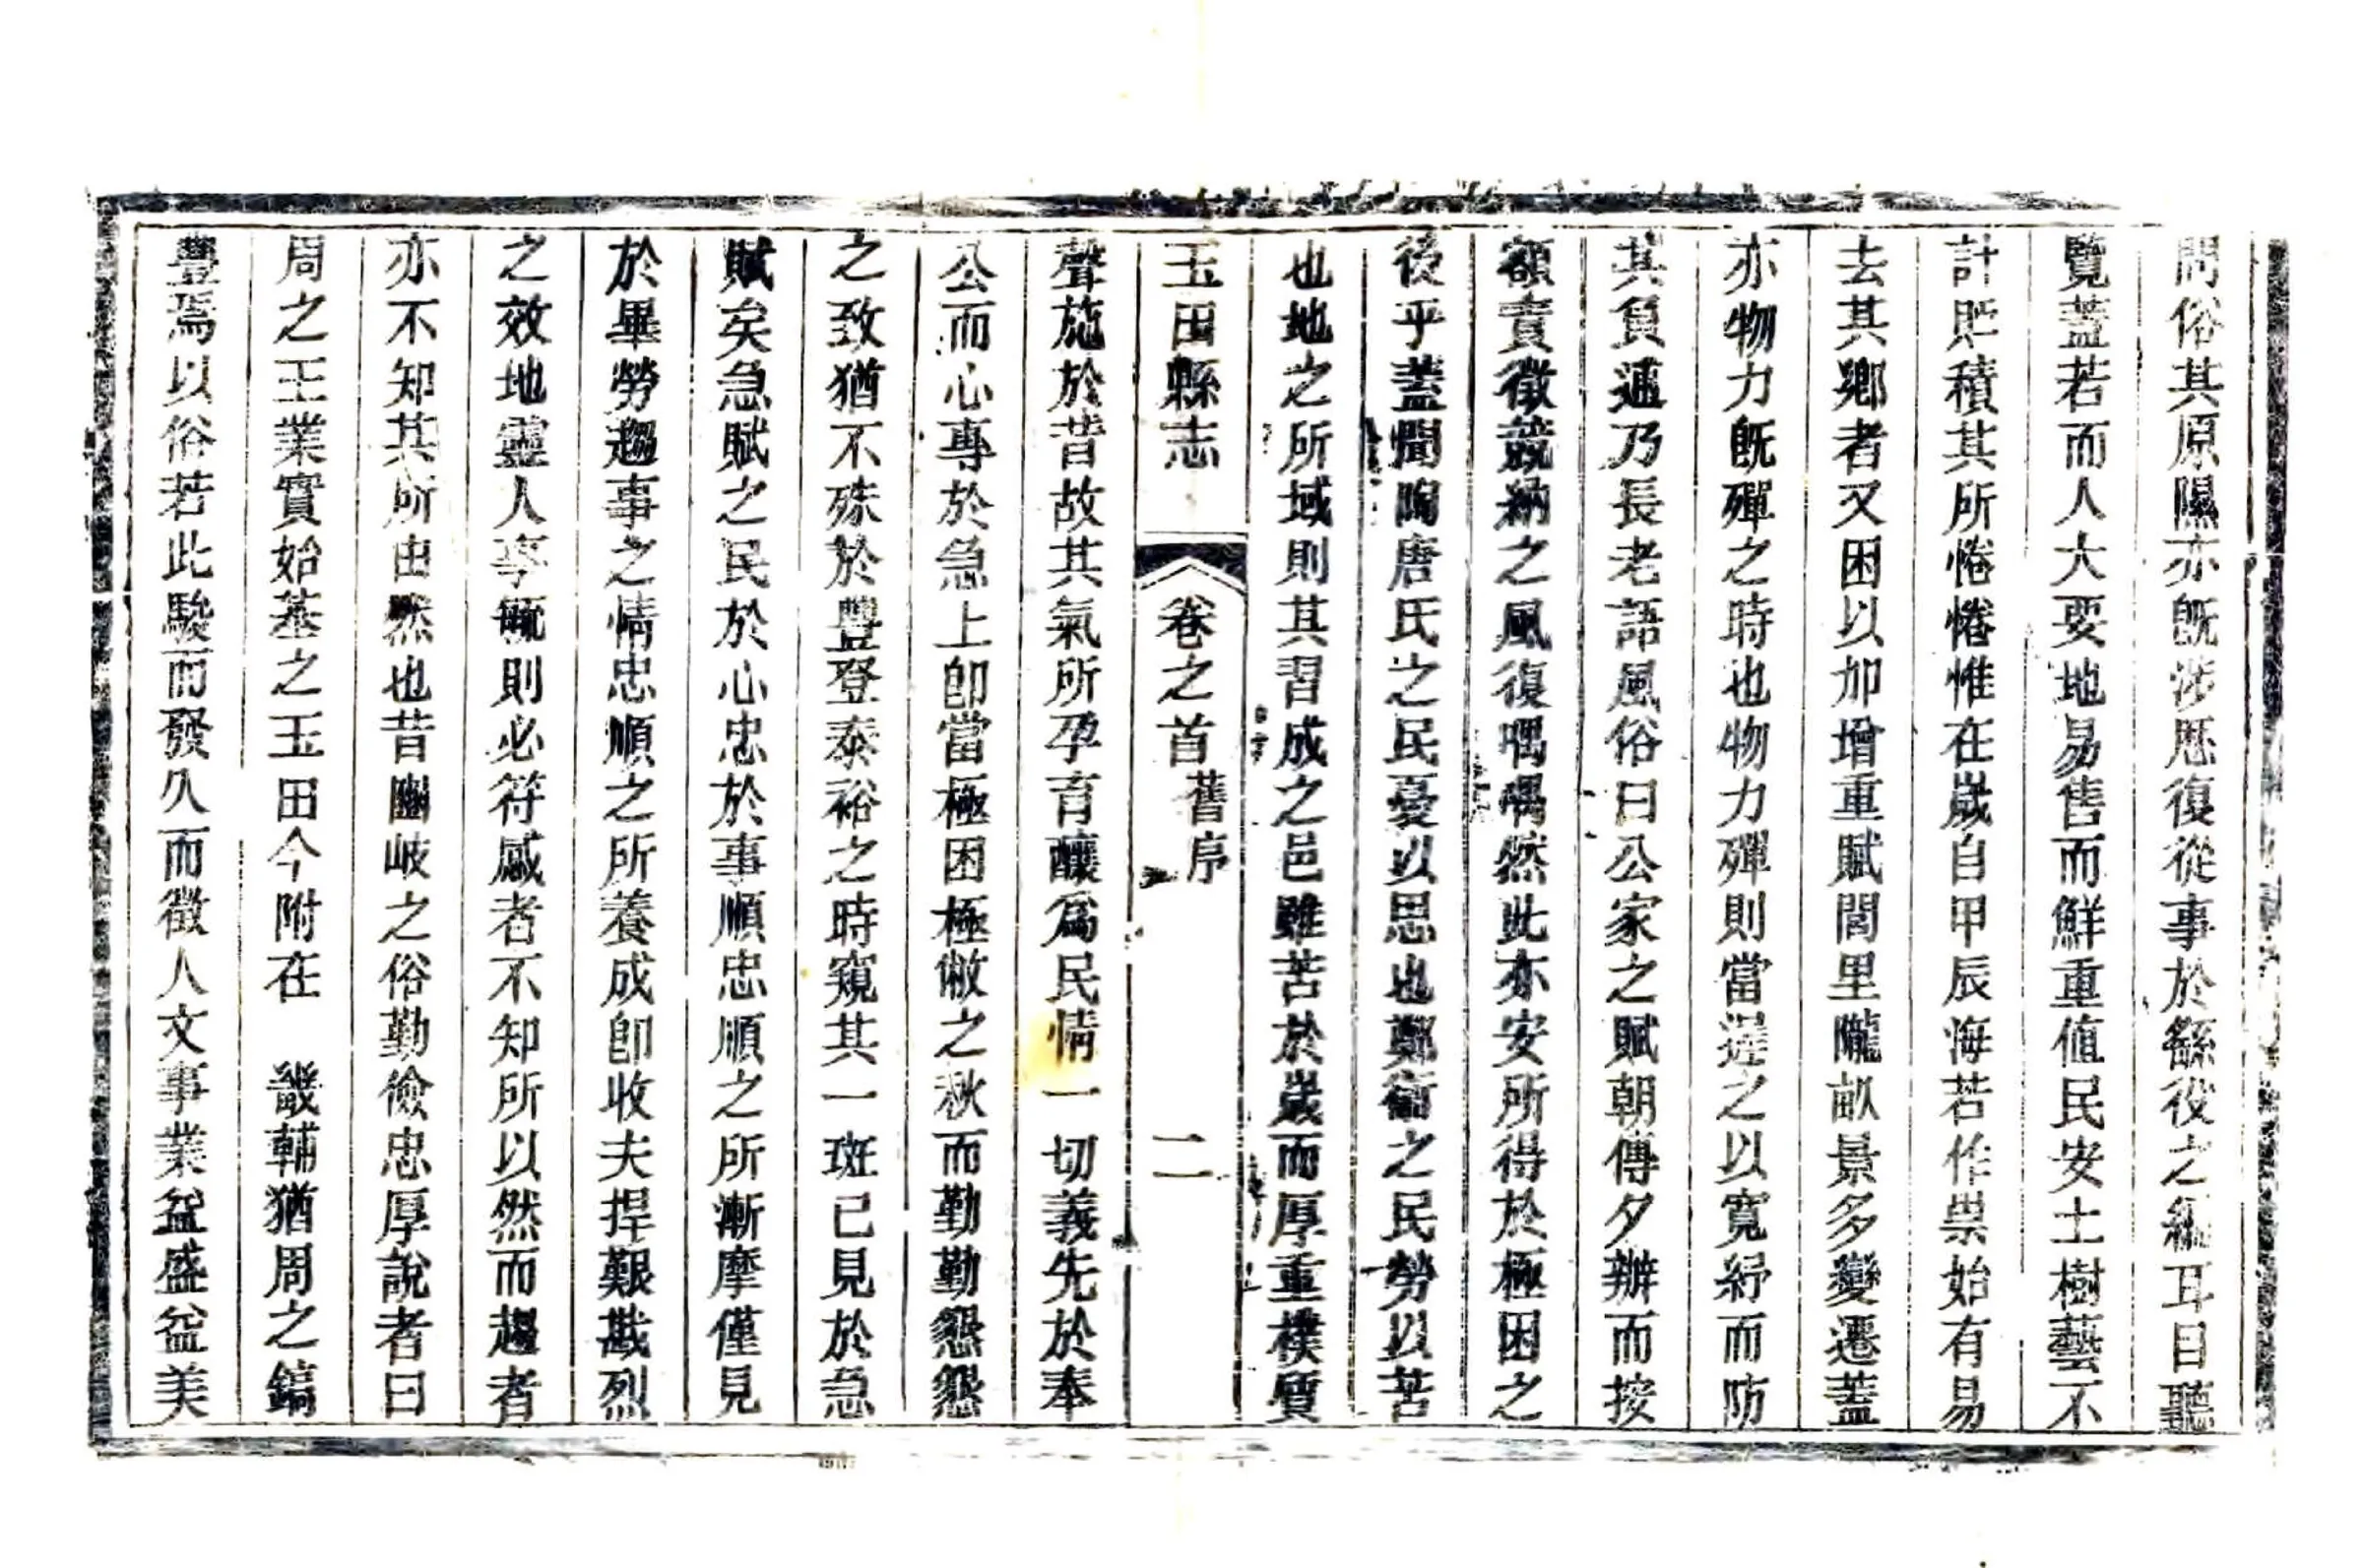 問俗其原隰亦旣涉歷復從事於繇役之編耳目聽
覽蓋若而人大要地易售而鮮重值民安土樹藝不
計貯積其所惓惓惟在歲自甲辰海若作祟始有易
去其鄉者又困以加增重賦閭里隴畝景多變遷蓋
亦物力旣殫之時也物力殫則當遲之以寬紓而防
其負逋乃長老語風俗曰公家之賦朝傳夕辦而按
額責徵競納之風復喁喁然此亦安所得於極困之
後乎蓋聞陶唐氏之民憂以思也鄭衞之民勞以苦
也地之所域則其習成之邑雖苦於歲而厚重樸質
玉田縣志 卷之首 舊序 二
聲施於昔故其氣所孕育釀爲民情一切義先於奉
公而心專於急上卽當極困極敝之秋而勤勤懇懇
之致猶不殊於豐登泰裕之時窺其一斑已見於急
賦矣急賦之民於心忠於事順忠順之所漸摩僅見
於畢勞趨事之情忠順之所養成卽收夫捍艱戡烈
之效地靈人事毓則必符感者不知所以然而趨者
亦不知其所由然也昔豳岐之俗勤儉忠厚說者曰
周之王業實始基之玉田今附在 畿輔猶周之鎬
豐焉以俗若此駿而發久而徵人文事業益盛益美